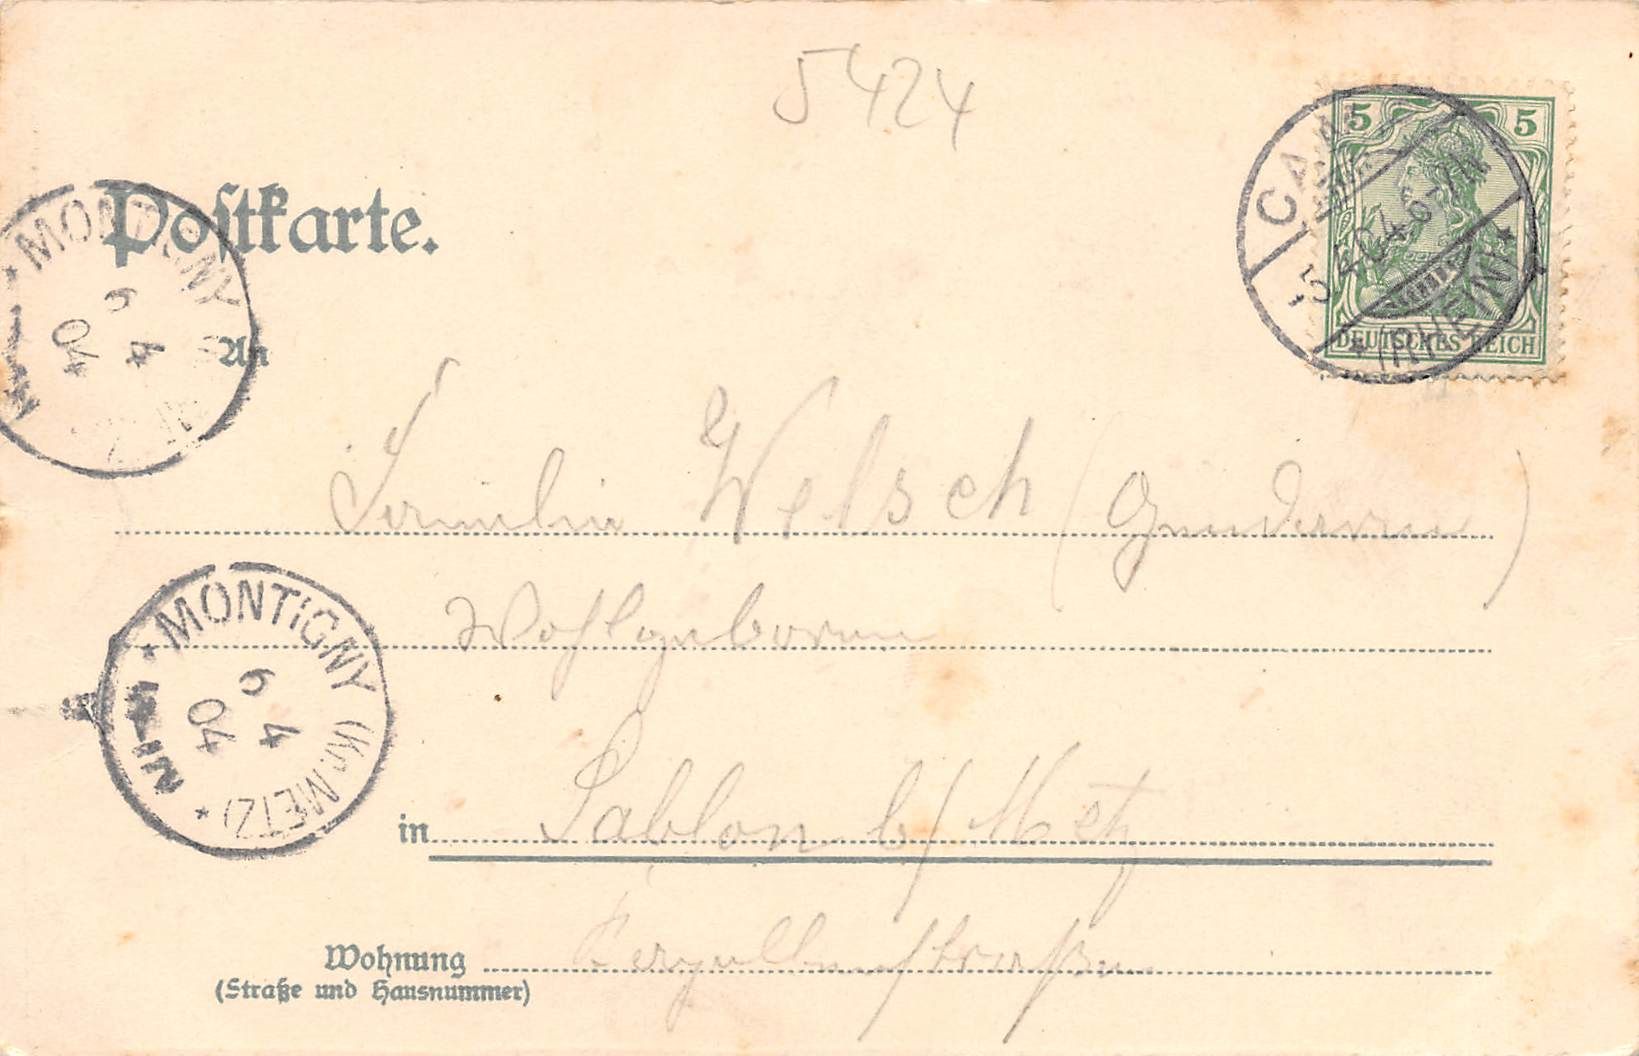 5424
Postkarte.
5 5
DEUTSCHES REICH
5.4.04.6-7N
(RHEIN)
MONTIGNY
6
4
04
An
Familie Welsch
Wohlgeboren
MONTIGNY (Kr. METZ)
6
4
04
in Sablon b/ Metz
Wohnung
(Straße und Hausnummer)